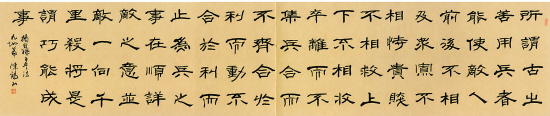 所謂古之
善用兵者
能使敵人
前後不相
及眾寡不
相恃貴賤
不相救上
下不相收
卒離而不
集兵合而
不齊合於
利而動不
合於利而
止為兵之
事在順詳
敵之意並
敵一向千
里殺將是
謂巧能成
事